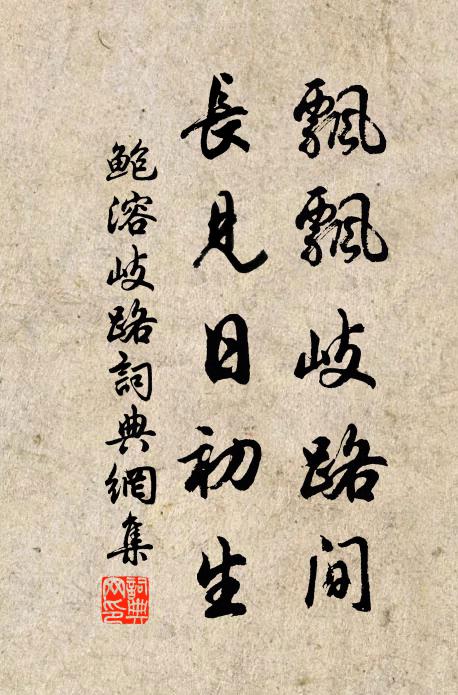 飄飄岐路間
長見日初生
鮑溶岐路詞典網集
詞典